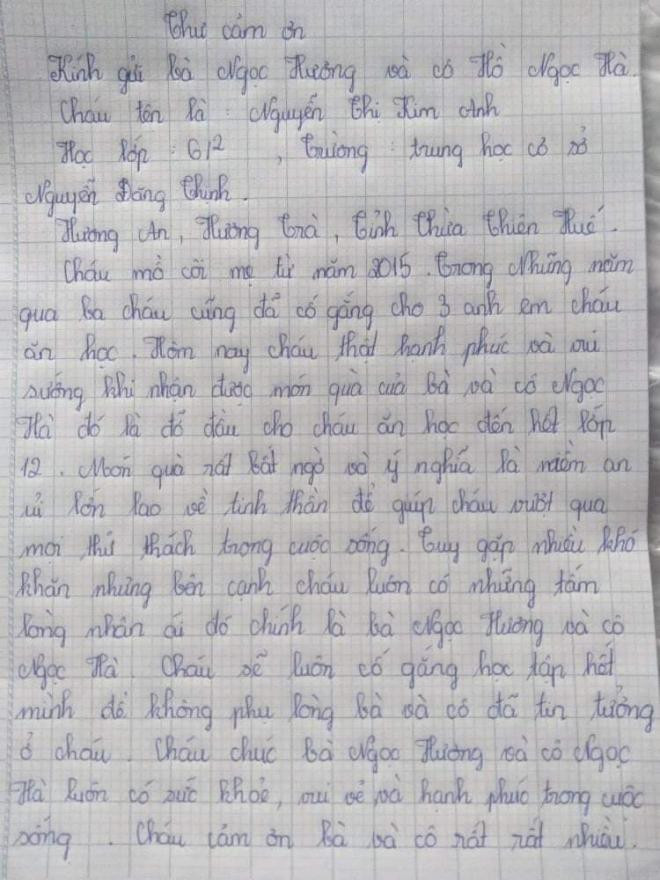 Thư cảm ơn
Kính gửi bà Ngọc Hương và cô Hồ Ngọc Hà.
Cháu tên là : Nguyễn Thị Kim Anh
Học lớp : 6/2 , Trường : trung học cở sở
Nguyễn Đăng Thịnh.
Hương An, Hương Trà, Tỉnh Thừa Thiên Huế.
Cháu mồ côi mẹ từ năm 2015. Trong Những năm
qua ba cháu cũng đã cố gắng cho 3 anh em cháu
ăn học. Hôm nay cháu thật hạnh phúc và vui
sướng khi nhận được món quà của Bà và cô Ngọc
Hà đó là đỡ đầu cho cháu ăn học đến hết lớp
12. Món quà rất bất ngờ và ý nghĩa là niềm an
ủi lớn lao về tinh thần để giúp cháu vượt qua
mọi thử thách trong cuộc sống. Tuy gặp nhiều khó
khăn nhưng bên cạnh cháu luôn có những tấm
lòng nhân ái đó chính là bà Ngọc Hương và cô
Ngọc Hà. Cháu sẽ luôn cố gắng học tập hết
mình để không phụ lòng bà và cô đã tin tưởng
ở cháu. Cháu chúc bà Ngọc Hương và cô Ngọc
Hà luôn có sức khỏe, vui vẻ và hạnh phúc trong cuộc
sống. Cháu cảm ơn bà và cô rất rất nhiều.